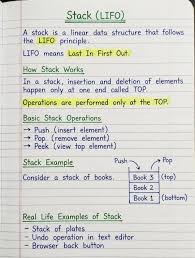 Stack (LIFO)
A stack is a linear data structure that follows
the LIFO principle.
LIFO means Last In First Out.
How Stack Works
In a stack, insertion and deletion of elements
happen only at one end called TOP.
Operations are performed only at the TOP.
Basic Stack Operations
→ Push (insert element)
→ Pop (remove element)
→ Peek (view top element)
Stack Example
Push Pop
Consider a stack of books.
Book 3 (top)
Book 2
Book 1 (bottom)
Real Life Examples of Stack
- Stack of plates
- Undo operation in text editor
- Browser back button